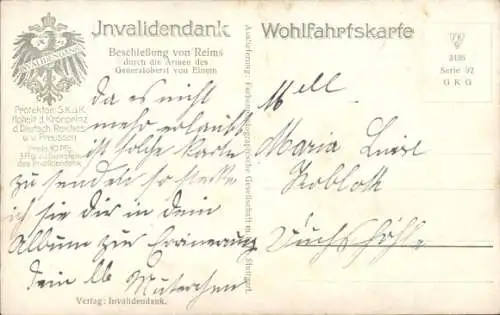 Invalidendank
Wohlfahrtskarte
Beschießung von Reims
durch die Armee des
Generaloberst von Einem
INVALIDENDANK
Protektor: S.K.u.K.
Hoheit d. Kronprinz
d. Deutsch. Reiches
u. v. Preussen
Preis 10 Pfg.
3 Pfg. zu Gunsten
des Invalidendank
3135
Serie 1/2
G K G
da es nicht
mehr erlaubt
ist solche Karte
zu senden so stecke
ich sie Dir in dein
Album zur Erinnerung
dein lb Mutterchen
Mell
Maria Luise
Kobloth
Verlag: Invalidendank.